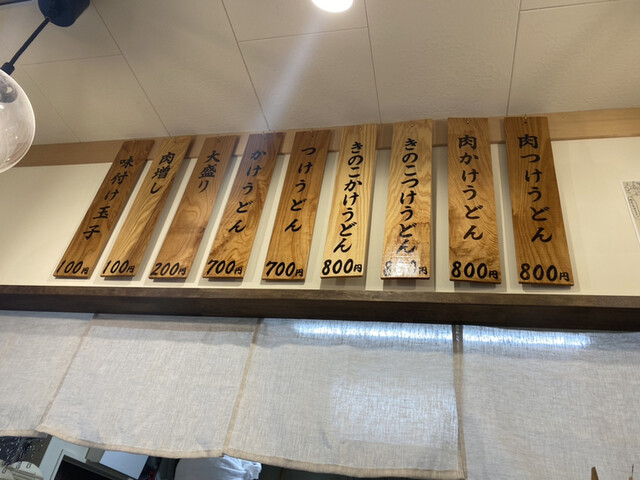 肉つけうどん
800円
肉かけうどん
800円
きのこつけうどん
800円
きのこかけうどん
800円
つけうどん
700円
かけうどん
700円
大盛り
200円
肉増し
100円
味付け玉子
100円